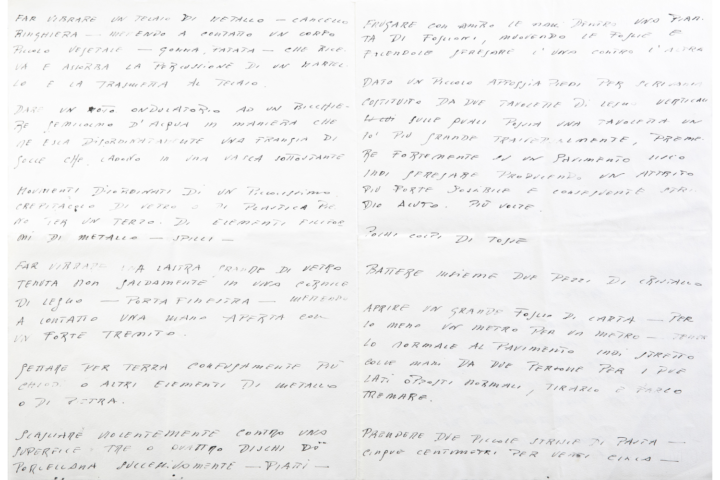 FAR VIBRARE UN TELAIO DI METALLO — CANCELLO
RINGHIERA — METTENDO A CONTATTO UN CORPO
PICCOLO VEGETALE — GOMMA, PATATA — CHE RICE-
VA E ASSORBA LA PERCUSSIONE DI UN MARTEL-
LO E LA TRASMETTA AL TELAIO.
DARE UN MOTO ONDULATORIO AD UN BICCHIE-
RE SEMICOLMO D'ACQUA IN MANIERA CHE
NE ESCA DISORDINATAMENTE UNA FRANGIA DI
GOCCE CHE CADONO IN UNA VASCA SOTTOSTANTE
MOVIMENTI DISORDINATI DI UN PICCOLISSIMO
CREPITACOLO DI VETRO O DI PLASTICA PIE-
NO PER UN TERZO DI ELEMENTI FILIFOR-
MI DI METALLO — SPILLI —
FAR VIBRARE UNA LASTRA GRANDE DI VETRO
TENUTA NON SALDAMENTE IN UNA CORNICE
DI LEGNO — PORTA FINESTRA — METTENDO
A CONTATTO UNA MANO APERTA CON
UN FORTE TREMITO.
GETTARE PER TERRA CONFUSAMENTE PIÙ
CHIODI O ALTRI ELEMENTI DI METALLO
O DI PIETRA.
SCAGLIARE VIOLENTEMENTE CONTRO UNA
SUPERFICE TRE O QUATTRO DISCHI DI
PORCELLANA SUCCESSIVAMENTE — PIATTI —
FRUGARE CON AMBO LE MANI DENTRO UNA PIAN-
TA DI FOGLIONI, MUOVENDO LE FOGLIE E
FACENDOLE SFREGARE L'UNA CONTRO L'ALTRA
DATO UN PICCOLO APPOGGIA PIEDI PER SCRIVANIA
COSTITUITO DA DUE TAVOLETTE DI LEGNO VERTICALI
SULLE QUALI POGGIA UNA TAVOLETTA UN
PO' PIÙ GRANDE TRASVERSALMENTE, PREME-
RE FORTEMENTE SU UN PAVIMENTO LISCIO
INDI SFREGARE PRODUCENDO UN ATTRITO
PIÙ FORTE POSSIBILE E CONSEGUENTE STRI-
DIO ACUTO. PIÙ VOLTE.
POCHI COLPI DI TOSSE
BATTERE INSIEME DUE PEZZI DI CRISTALLO
APRIRE UN GRANDE FOGLIO DI CARTA — PER
LO MENO UN METRO PER UN METRO —
LO NORMALE AL PAVIMENTO INDI STRETTO
COLLE MANI DA DUE PERSONE PER I DUE
LATI OPPOSTI NORMALI, TIRARLO E FARLO
TREMARE.
PRENDERE DUE PICCOLE STRISCE DI CARTA —
CINQUE CENTIMETRI PER VENTI CIRCA —